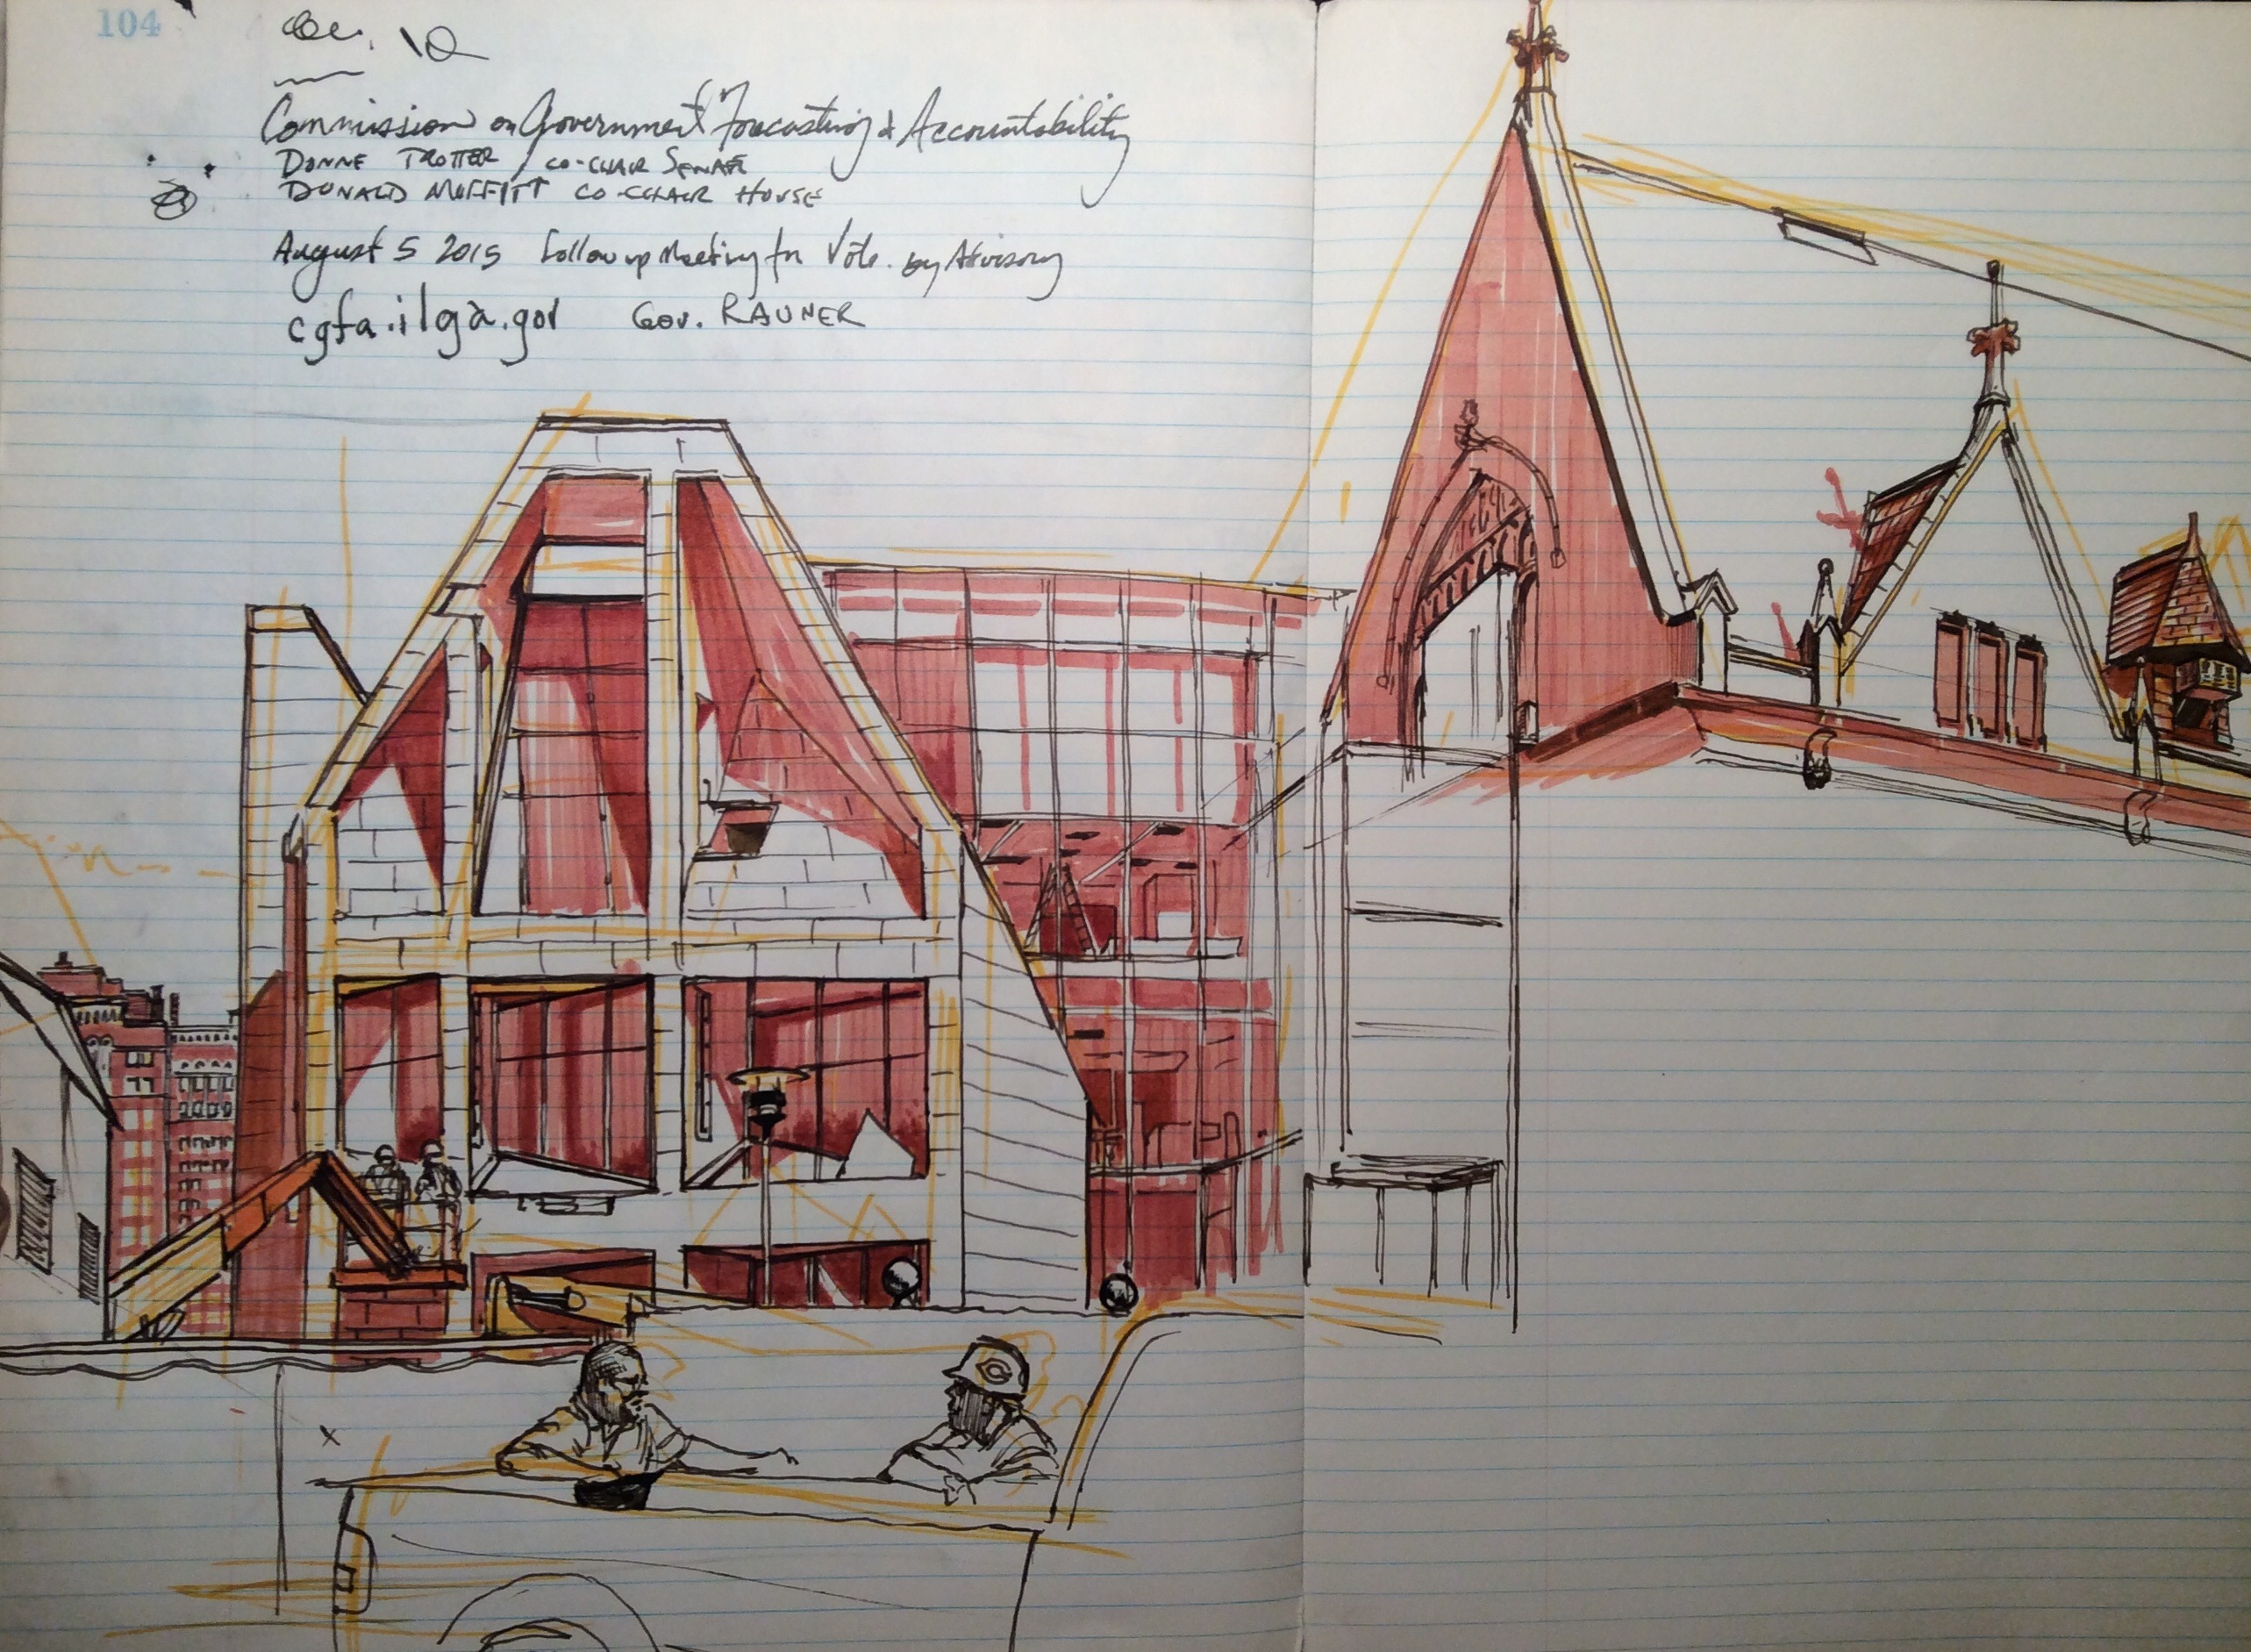 104
Commission on Government Forecasting & Accountability
DONNE TROTTER / CO-CHAIR SENATE
DONALD MOFFITT CO-CHAIR HOUSE
August 5 2015 Follow up Meeting for Vote. by Advisory
cgfa.ilga.gov Gov. RAUNER
C
x